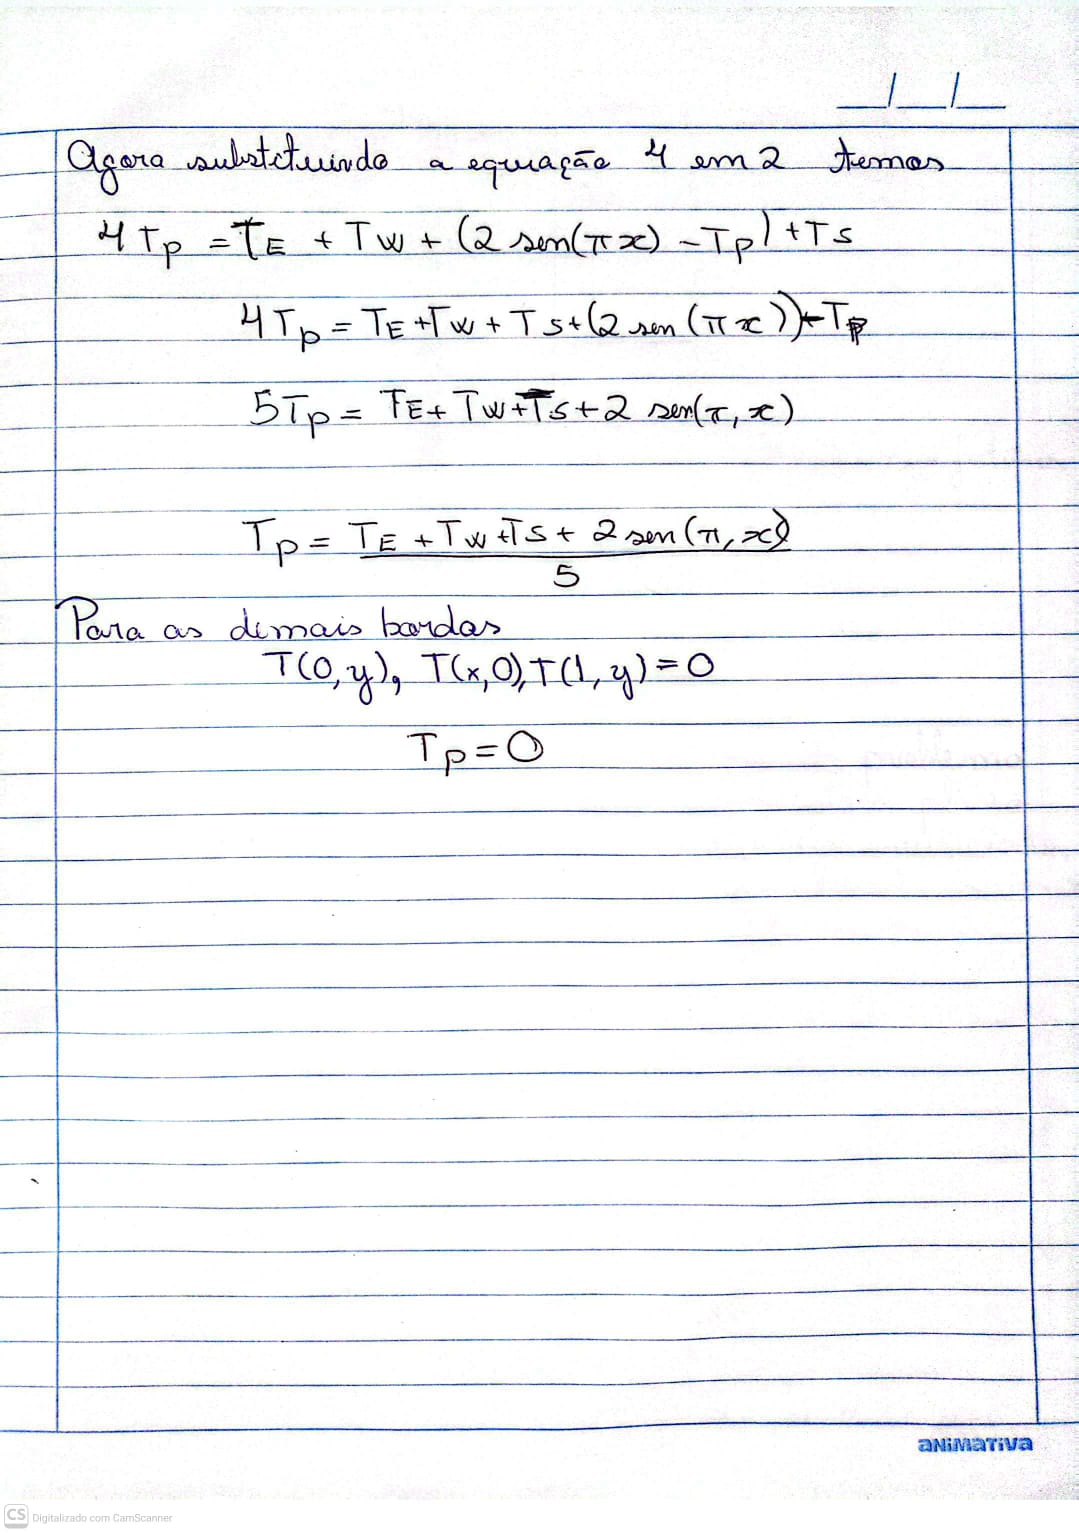 __/__/__
Agora substituindo a equação 4 em 2 temos
4 Tp = TE + TW + (2 sen(πx) - Tp) + TS
4 Tp = TE + TW + TS + (2 sen (πx)) - Tp
5Tp = TE + TW + TS + 2 sen(π, x)
Tp = TE + TW + TS + 2 sen(π, x)
5
Para as demais bordas
T(0, y), T(x, 0), T(1, y) = 0
Tp = 0
ANiMaTiVa
CS Digitalizado com CamScanner